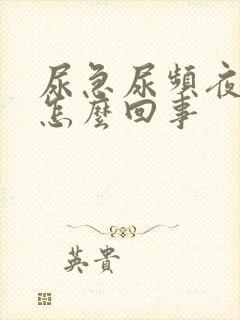 尿急尿頻夜
怎麼回事
英貴